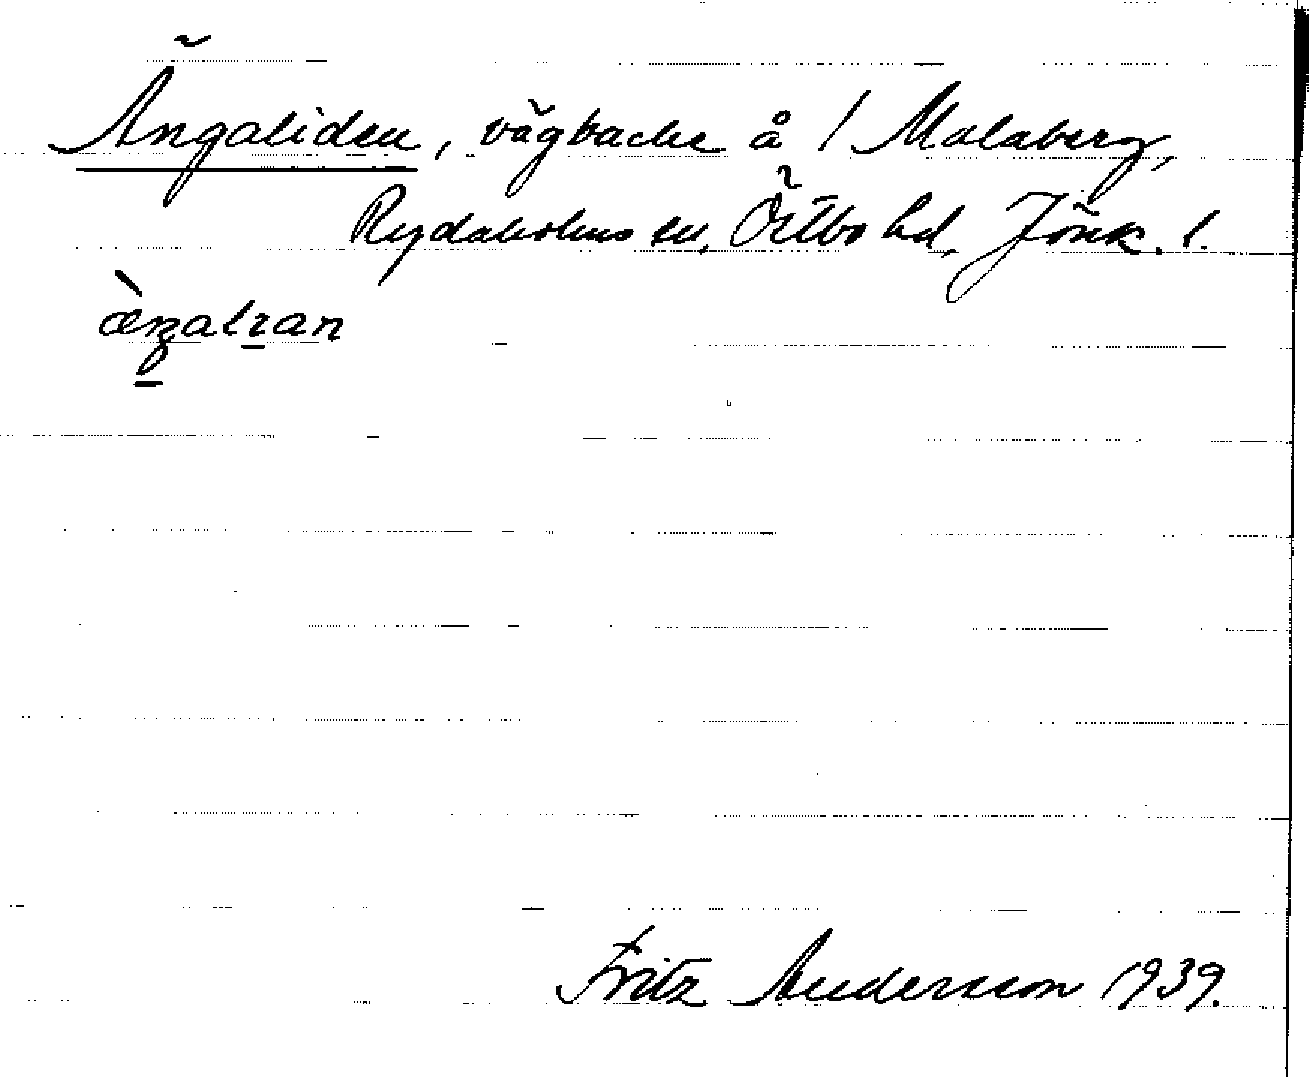 Ängaliden, vägbacke å / Malaberg,
Rydaholms sn, Östbo hd, Jönk. l.
Fritz Andersson 1939.